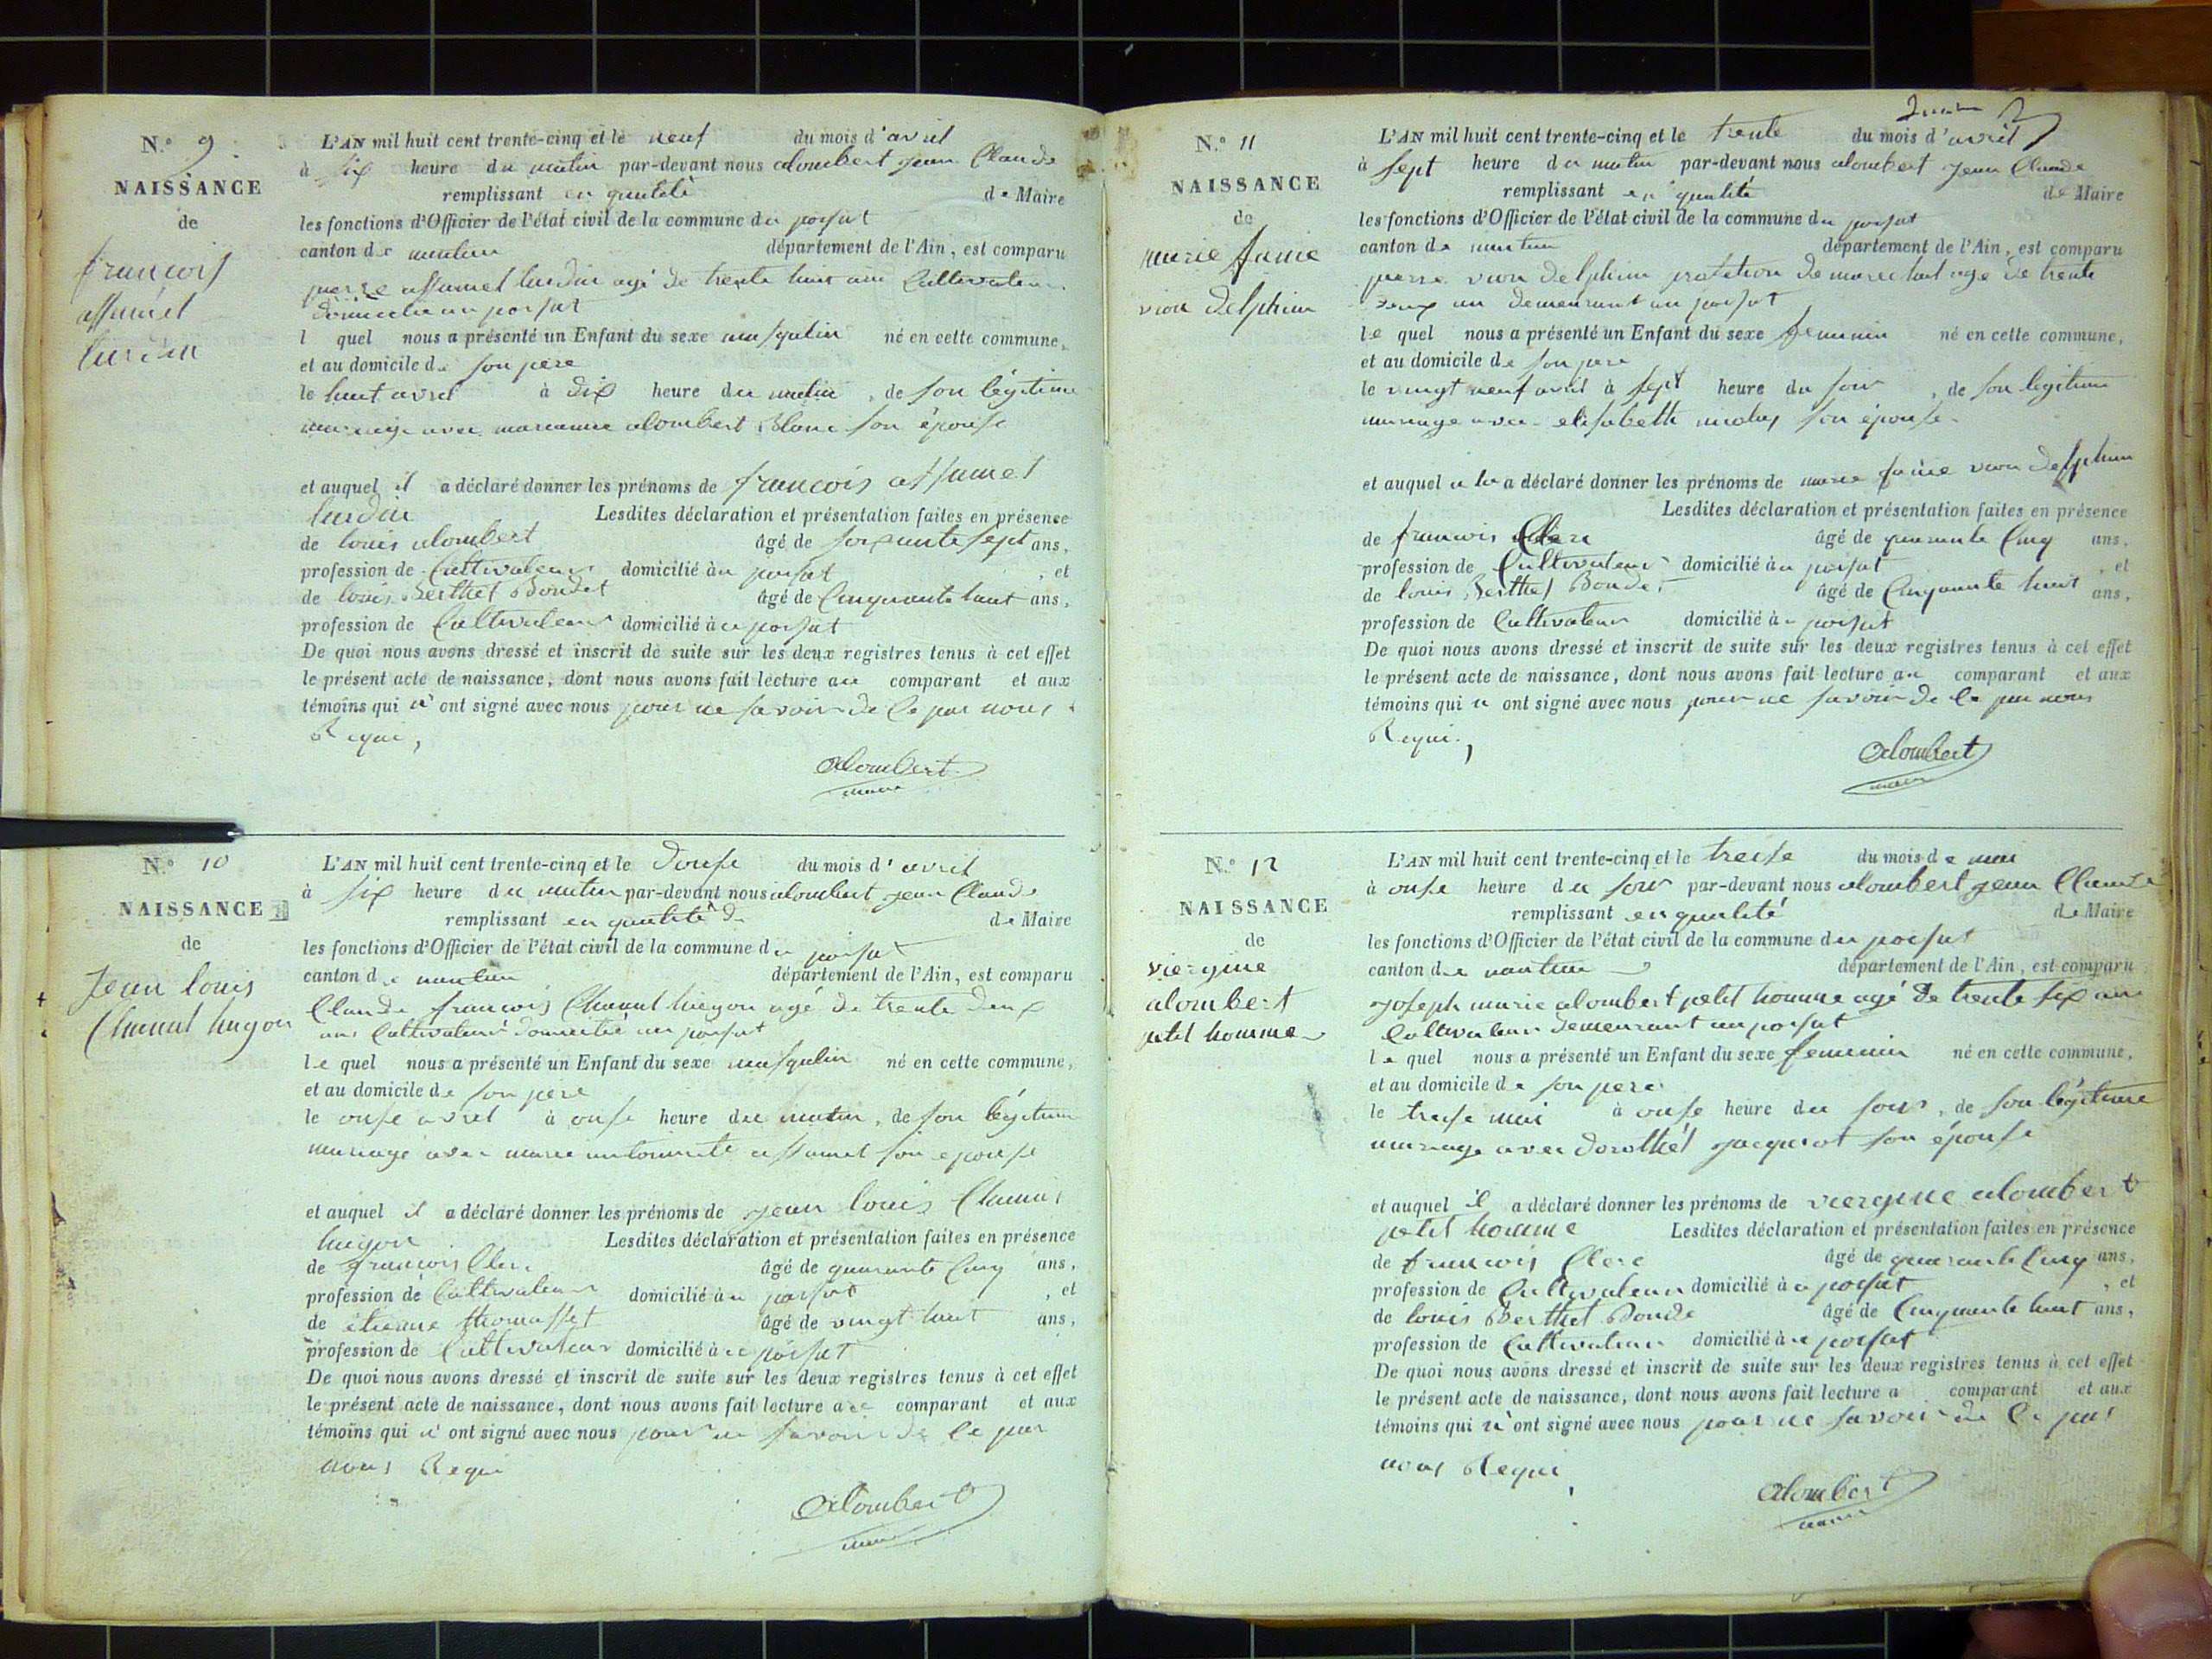 N.° 9
NAISSANCE
de
francois
assumel
lurdin
L'AN mil huit cent trente-cinq et le neuf du mois d'avril
à six heure du matin par-devant nous alombert jean Claude
remplissant en qualité de Maire
les fonctions d'Officier de l'état civil de la commune du poisat
canton de nantua département de l'Ain, est comparu
pierre assumel lurdin agé de trente huit ans Cultivateur
domicilié au poisat
l quel nous a présenté un Enfant du sexe masqulin né en cette commune,
et au domicile de son pere
le huit avril à dix heure du matin, de son légitime
mariage avec marianne alombert Blanc son épouse
et auquel il a déclaré donner les prénoms de francois assumel
lurdin Lesdites déclaration et présentation faites en présence
de louis alombert âgé de soixante sept ans,
profession de Cultivateur domicilié à u poisat, et
de louis Berthet Bondet âgé de Cinquante huit ans,
profession de Cultivateur domicilié à u poisat
De quoi nous avons dressé et inscrit de suite sur les deux registres tenus à cet effet
le présent acte de naissance, dont nous avons fait lecture au comparant et aux
témoins qui n'ont signé avec nous pour ne savoir de ce par nous
Requi,
alombert
maire
N.° 10
NAISSANCE
de
Jean louis
Chanut hugon
L'AN mil huit cent trente-cinq et le douse du mois d'avril
à six heure du matin par-devant nous alombert jean Claude
remplissant en qualité de Maire
les fonctions d'Officier de l'état civil de la commune du poisat
canton de nantua département de l'Ain, est comparu
Claude francois Chanut hugon agé de trente deux
ans Cultivateur domicilié au poisat
le quel nous a présenté un Enfant du sexe masqulin né en cette commune,
et au domicile de son pere
le onse avril à onse heure du matin, de son légitime
mariage avec marie antoinette assumel son epouse
et auquel il a déclaré donner les prénoms de jean louis Chanut
hugon Lesdites déclaration et présentation faites en présence
de francois Clerc âgé de quarante Cinq ans,
profession de Cultivateur domicilié à u poisat, et
de étienne thomasset âgé de vingt huit ans,
profession de Cultivateur domicilié à u poisat
De quoi nous avons dressé et inscrit de suite sur les deux registres tenus à cet effet
le présent acte de naissance, dont nous avons fait lecture au comparant et aux
témoins qui n'ont signé avec nous pour ne savoir de ce par
nous Requi
alombert
maire
N.° 11
NAISSANCE
de
marie
vion delphin
L'AN mil huit cent trente-cinq et le trente du mois d'avril
à sept heure du matin par-devant nous alombert jean Claude
remplissant en qualité de Maire
les fonctions d'Officier de l'état civil de la commune du poisat
canton de nantua département de l'Ain, est comparu
pierre vion delphin agé de trente
deux an demeurant au poisat
le quel nous a présenté un Enfant du sexe feminin né en cette commune,
et au domicile de son pere
le vingt neuf avril à sept heure du soir, de son legitime
mariage avec elisabeth son épouse
et auquel a déclaré donner les prénoms de marie vion delphin
Lesdites déclaration et présentation faites en présence
de francois Clerc âgé de quarante Cinq ans,
profession de Cultivateur domicilié à u poisat, et
de louis Berthet Bondet âgé de Cinquante huit ans,
profession de Cultivateur domicilié à u poisat
De quoi nous avons dressé et inscrit de suite sur les deux registres tenus à cet effet
le présent acte de naissance, dont nous avons fait lecture au comparant et aux
témoins qui n ont signé avec nous pour ne savoir de ce par nous
Requi,
alombert
maire
N.° 12
NAISSANCE
de
viergine
alombert
petit homme
L'AN mil huit cent trente-cinq et le treise du mois de mai
à onse heure du soir par-devant nous alombert jean Claude
remplissant en qualité de Maire
les fonctions d'Officier de l'état civil de la commune du poisat
canton de nantua département de l'Ain, est comparu
joseph marie alombert petit homme agé de trente six ans
Cultivateur demeurant au poisat
le quel nous a présenté un Enfant du sexe feminin né en cette commune,
et au domicile de son pere
le treise mai à onse heure du soir, de son légitime
mariage avec dorothé jacquiot son épouse
et auquel il a déclaré donner les prénoms de viergine alombert
petit homme Lesdites déclaration et présentation faites en présence
de francois Clerc âgé de quarante Cinq ans,
profession de Cultivateur domicilié à u poisat, et
de louis Berthet Bonde âgé de Cinquante huit ans,
profession de Cultivateur domicilié à u poisat
De quoi nous avons dressé et inscrit de suite sur les deux registres tenus à cet effet
le présent acte de naissance, dont nous avons fait lecture a comparant et aux
témoins qui n'ont signé avec nous pour ne savoir de ce par
nous Requi
alombert
maire